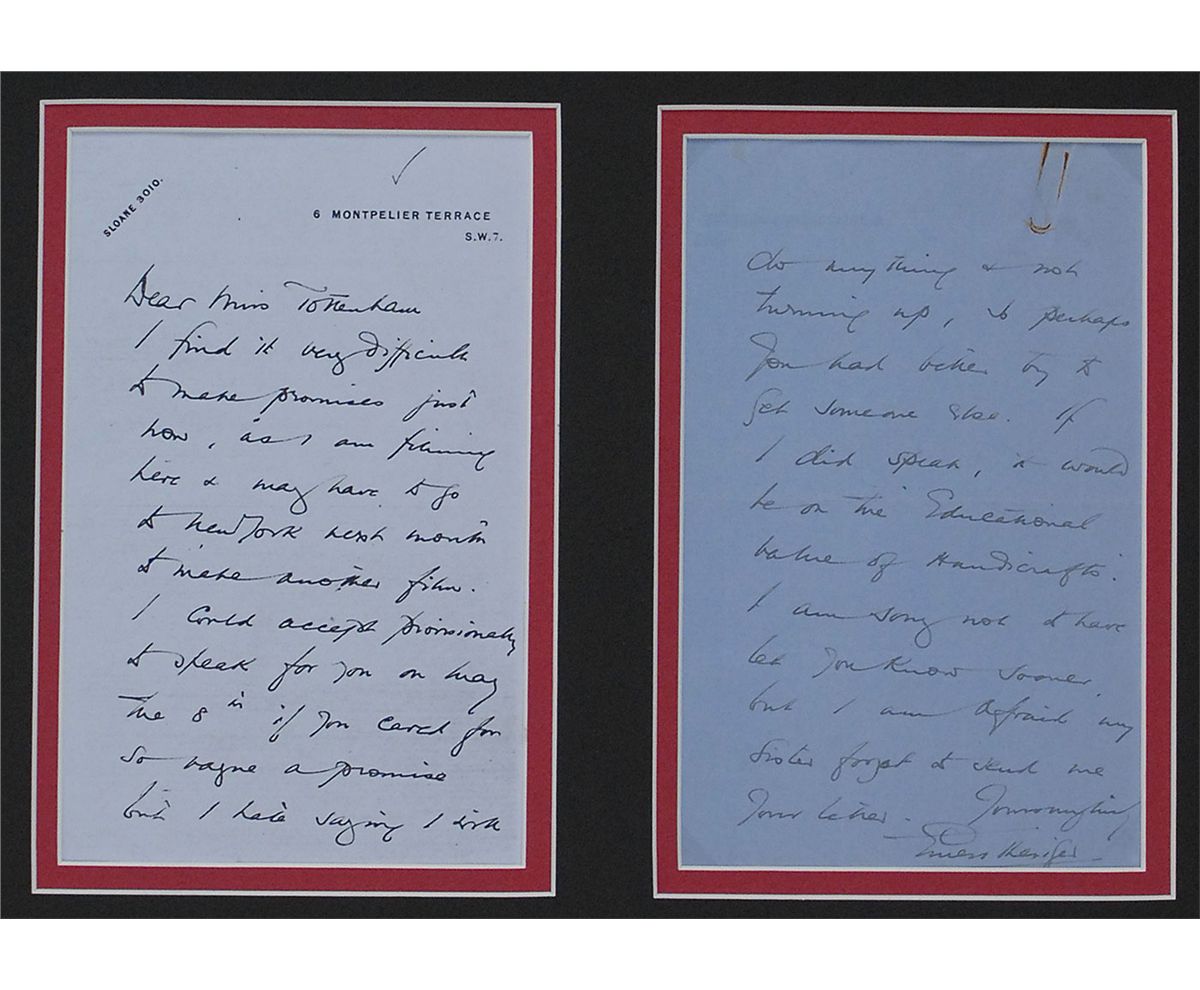 SLOANE 3010.
6 MONTPELIER TERRACE
S.W.7.
Dear Miss Tottenham
I find it very difficult
to make promises just
now, as I am filming
here & may have to go
to New York next month
to make another film.
I could accept provisionally
to speak for you on May
the 8th if you cared for
so vague a promise
but I hate saying I will
do anything & not
turning up, so perhaps
you had better try to
get someone else. If
I did speak, it would
be on the Educational
value of Handicrafts.
I am sorry not to have
let you know sooner,
but I am afraid my
sister forgot to send me
your letter.
Ernest Thesiger